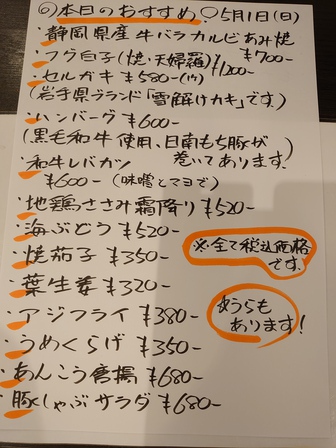 ◎本日のおすすめ!○5月1日(日)
・静岡県産牛バラカルビあみ焼
¥700-
・フグ白子(焼・天婦羅)¥1200-
・セルガキ¥580-(1ヶ)
(岩手県ブランド「雪解けカキ」です)
・ハンバーグ¥600-
(黒毛和牛使用、日南もち豚が
巻いてあります)
・和牛レバカツ
¥600-(味噌とマヨで)
・地鶏ささみ霜降り¥520-
・海ぶどう¥520-
・焼茄子¥350-
・葉生姜¥320-
・アジフライ¥380-
・うめくらげ¥350-
・あんこう唐揚¥680-
・豚しゃぶサラダ¥680-
※全て税込価格
です。
めうらも
あります!